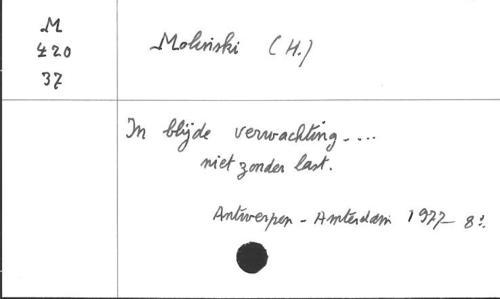 M
420
37
Molinski (H.)
In blijde verwachting....
niet zonder last.
Antwerpen - Amsterdam 1977 - 8°.